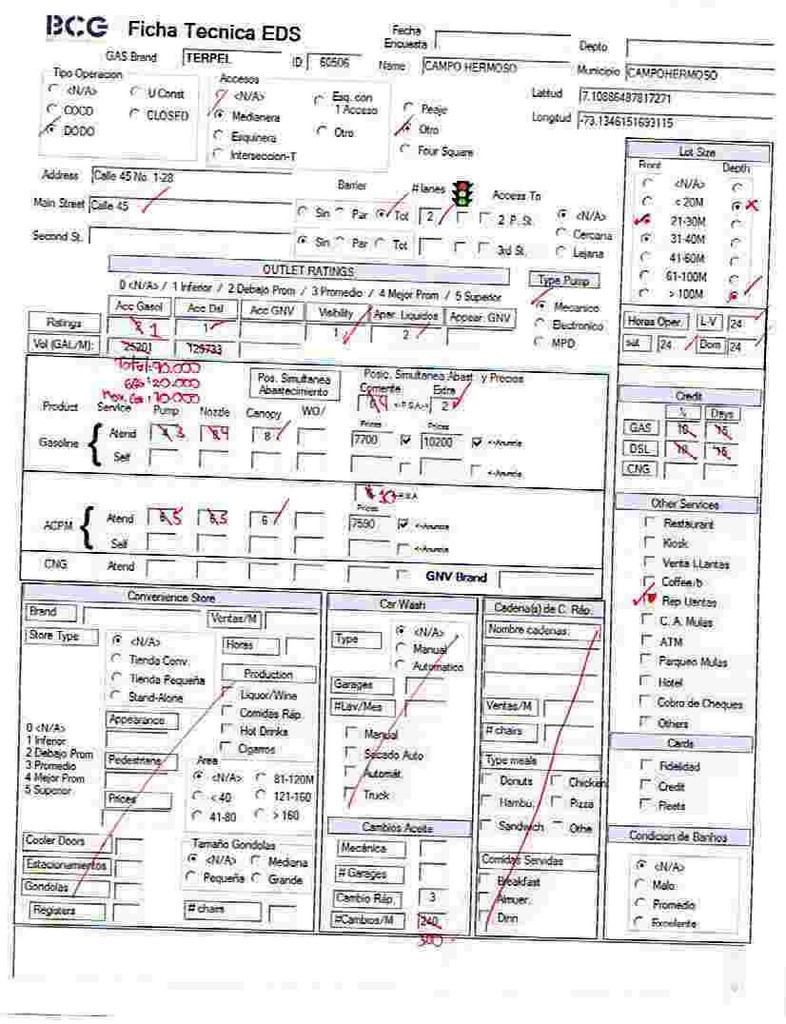 BCG Ficha Tecnica EDS
Fecha Encuesta
Depto.
GAS Brand TERPEL ID 60506 Name CAMPO HERMOSO Municipio CAMPOHERMOSO
Tipo Operacion
<N/A> U Const
COCO CLOSED
DODO
Accesos
<N/A> Esq. con 1 Acceso
Medianera
Esquinera Otro
Interseccion-T
Peaje
Otro
Four Square
Latitud 7.10886487817271
Longitud -73.1346151693115
Address Calle 45 No. 1-28
Main Street Calle 45
Second St.
Barrier #lanes Access To
Sin Par Tot 2 2 P. St.
Sin Par Tot 3rd St.
<N/A>
Cercana
Lejana
Lot Size
Front Depth
<N/A>
< 20M
21-30M
31-40M
41-60M
61-100M
> 100M
OUTLET RATINGS
0 <N/A> / 1 Inferior / 2 Debajo Prom / 3 Promedio / 4 Mejor Prom / 5 Superior
Acc Gasol Acc Dsl Acc GNV Visibility Apar. Liquidos Appear. GNV
Ratings 1 1 1 2
Vol (GAL/M): 25201 125733
Type Pump
Mecanico
Electronico
MPD
Horas Oper. L-V 24
sat 24 Dom 24
Total: 90.000
Gas: 20.000
70.000
Pos. Simultanea Abastecimiento
Posic. Simultanea Abast. y Precios
Corriente Extra
4 <-P.S.A-> 2
Product Service Pump Nozzle Canopy WO/
Prices Prices
Gasoline Atend 3 4 8 7700 10200 <-Anuncia
Self <-Anuncia
10
Prices
ACPM Atend 5 5 6 7590 <-Anuncia
Self <-Anuncia
CNG Atend GNV Brand
Credit
% Days
GAS 10 15
DSL 10 15
CNG
Other Services
Restaurant
Kiosk
Venta LLantas
Coffee/b
Rep Llantas
C. A. Mulas
ATM
Parqueo Mulas
Hotel
Cobro de Cheques
Others
Cards
Fidelidad
Credit
Fleets
Condicion de Banhos
<N/A>
Malo
Promedio
Excelente
Convenience Store
Brand Ventas/M
Store Type
<N/A>
Tienda Conv.
Tienda Pequeña
Stand-Alone
Horas
Production
Liquor/Wine
Comidas Ráp.
Hot Drinks
Cigarros
Appearance
0 <N/A>
1 Inferior
2 Debajo Prom
3 Promedio
4 Mejor Prom
5 Superior
Pedestrians
Prices
Area
<N/A> 81-120M
< 40 121-160
41-80 > 160
Cooler Doors
Estacionamientos
Gondolas
Registers
Tamaño Gondolas
<N/A> Mediana
Pequeña Grande
# chairs
Car Wash
Type
<N/A>
Manual
Automatico
Garages
#Lav/Mes
Manual
Secado Auto
Automát.
Truck
Cambios Aceite
Mecánica
# Garages
Cambio Ráp. 3
#Cambios/M 240
300
Cadena(s) de C. Ráp.
Nombre cadenas:
Ventas/M
# chairs
Type meals
Donuts Chicken
Hambu. Pizza
Sandwich Othe
Comidas Servidas
Breakfast
Almuer.
Dinn